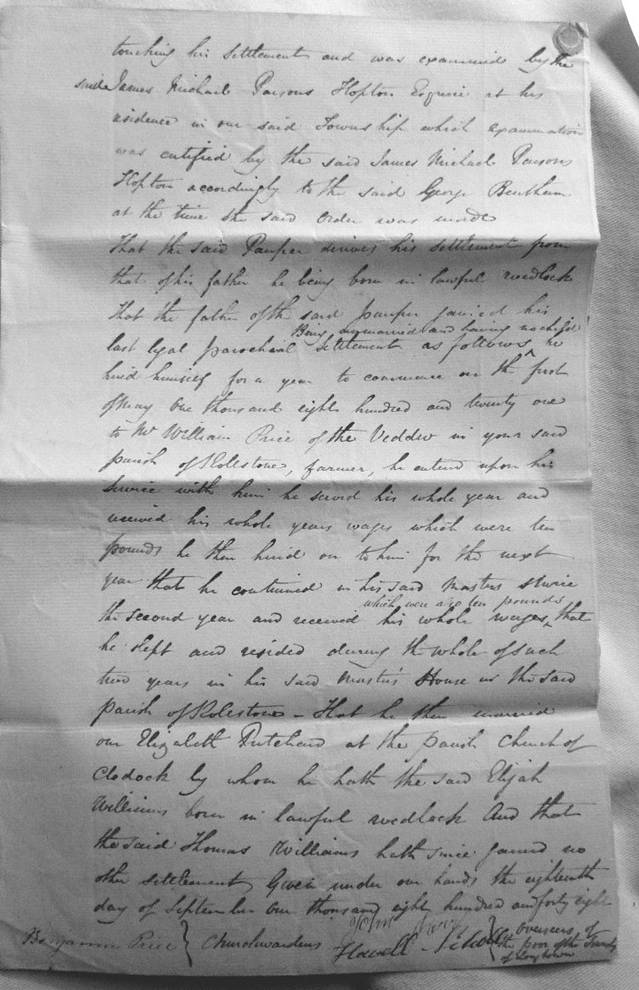 touching his settlement and was examined by the
said James Michael Parsons Hopton Esquire at his
residence in our said Township which examination
was certified by the said James Michael Parsons
Hopton accordingly to the said George Bentham
at the time the said Order was made
That the said Pauper derives his settlement from
that of his father he being born in lawful wedlock
That the father of the said pauper gained his
Being unmarried and having no child
last legal parochial settlement as follows he
hired himself for a year to commence on the first
of May One thousand eight hundred and twenty one
to Mr William Price of the Veddw in your said
parish of Rolestone, farmer, he entered upon his
service with him he served his whole year and
received his whole years wages which were ten
pounds he then hired on to him for the next
year that he continued in his said Masters service
which were also ten pounds
the second year and received his whole wages, that
he slept and resided during the whole of such
two years in his said Master's House in the said
parish of Rolestone – That he then married
one Elizabeth Pritchard at the parish Church of
Clodock by whom he hath the said Elijah
Williams born in lawful wedlock And that
the said Thomas Williams hath since gained no
other settlement Given under our hands the eighteenth
day of September One thousand eight hundred and forty eight
Benjamin Price } Churchwardens
John
Howell
} Overseers of
the poor of the Township
of Longtown